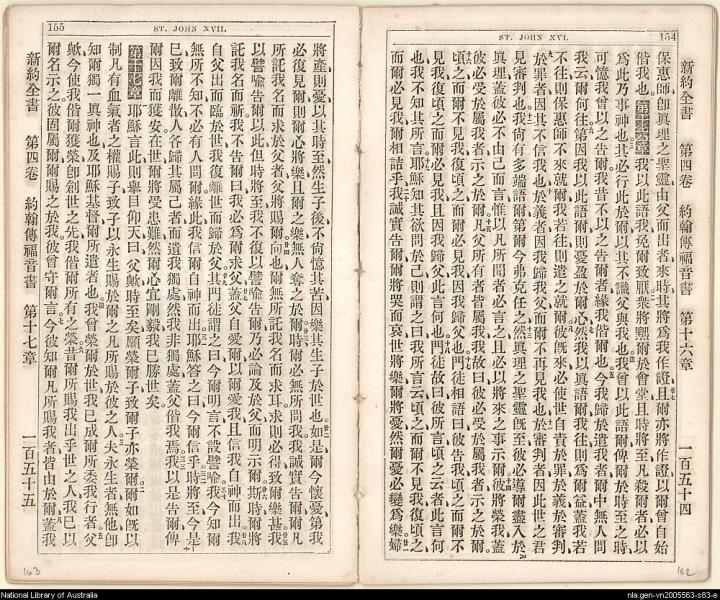 ST. JOHN XVI.
154
新約全書 第四卷 約翰傳福音書 第十六章 一百五十四
保惠師卽眞理之聖靈由父而出者來時其將爲我作證且爾亦將作證以爾曾自始
偕我也第十六章我以此語爾免爾致厭衆將黜爾於會堂且時將至凡殺爾者必以
爲此乃事神也其必行此於爾以其不識父與我也我曾以此語爾俾爾於時至之時
可憶我曾以之告爾我昔不以之告爾者緣我偕爾也今我歸於遣我者爾中無人問
我云爾何往第因我以此語爾則憂盈於爾心然我以眞語爾我往則爲爾益蓋我若
不往則保惠師不來就爾我若往則遣之就爾彼旣來必使世自責於罪於義於審判
於罪者因其不信我也於義者因我歸我父而爾不再見我也於審判者因此世之君
見審判也我尙有多端語爾第爾今弗克任之然眞理之聖靈旣至彼必導爾盡入於
眞理蓋彼必不由己而言惟以凡所聞者必言之且必以將來之事示爾彼將榮我蓋
彼必受於屬我者示之於爾凡父所有者皆屬我我故曰彼必受於屬我者示之於爾
頃之而爾不見我復頃之而爾必見我因我歸父也門徒相語曰彼告我頃之而爾不
見我復頃之而爾必見我且因我歸父此言何也門徒故曰彼所言頃之云者此言何
也我不知其所言耶穌知其欲問於己則謂之曰我所言云頃之而爾不見我復頃之
而爾必見我爾相詰乎我誠實告爾爾將哭而哀世將樂爾將憂然爾憂必變爲樂婦
162
155
ST. JOHN XVII.
將產則憂以其時至然生子後不尙憶其苦因樂其生子於世也如是爾今懷憂第我
必復見爾則爾心將樂且爾之樂無人奪之於爾時爾必無所問我我誠實告爾爾凡
所託我名而求於父者父將賜爾向也爾無所託我名而求耳求則必得致爾樂甚我
以譬喻告爾以此但時將至我不復以譬喻告爾乃必論及於父而明示爾斯時爾將
託我名而祈我不告爾曰我必爲爾求父蓋父自愛爾以爾愛我且信我自神而出我
自父出而臨於世我復離世而歸於父其門徒謂之曰今爾明言不設譬喻我今知爾
無所不知不必有人問爾緣此我信爾自神而出耶穌答之曰今爾信乎時將至今是
已致爾離散人各歸其屬己者而遺我獨處然我非獨處蓋父偕我焉我以是告爾俾
爾因我而獲安在世爾將受患難然爾心宜剛毅我已勝世矣
第十七章 耶穌言此則舉目仰天曰父歟時至矣願榮爾子致爾子亦榮爾爾如旣以
制凡有血氣者之權賜子致子以永生賜於爾之凡所賜於彼之人夫永生者無他卽
知爾獨一眞神也及耶穌基督爾所遣者也我曾榮爾於世我已成爾所委我行者父
歟今使我偕爾獲榮卽創世之先我偕爾所有之榮昔爾所賜我出乎世之人我已以
爾名示之彼固屬爾爾賜之於我彼曾守爾言今彼知爾凡所賜我者皆由於爾蓋我
新約全書 第四卷 約翰傳福音書 第十七章 一百五十五
163
National Library of Australia
nla.gen-vn2005563-s83-e